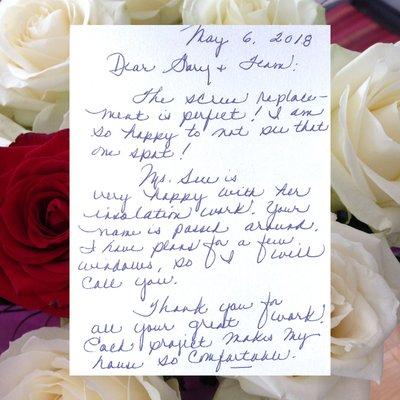 May 6, 2018
Dear Gary & Team:
The scree replace-
ment is perfect! I am
so happy to not see that
one spot!
Ms. Sue is
very happy with her
insolation work. Your
name is passed around.
I have plans for a few
windows, so I will
call you.
Thank you for
all your great work!
Each project makes my
house so comfortable.